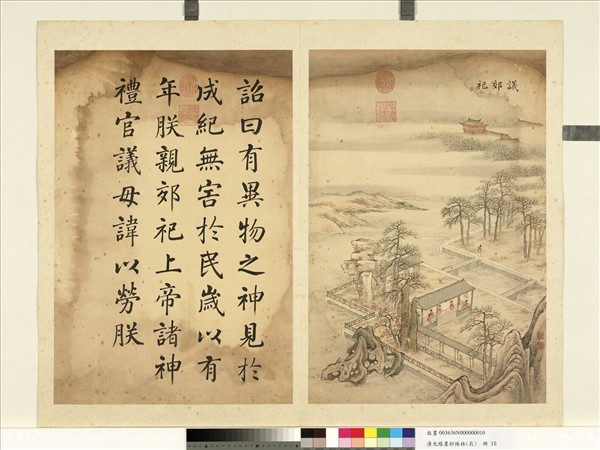 議郊祀
詔曰有異物之神見於
成紀無害於民歲以有
年朕親郊祀上帝諸神
禮官議毋諱以勞朕
故畫 003636N000000010
墨妙珠林(辰) 冊 10